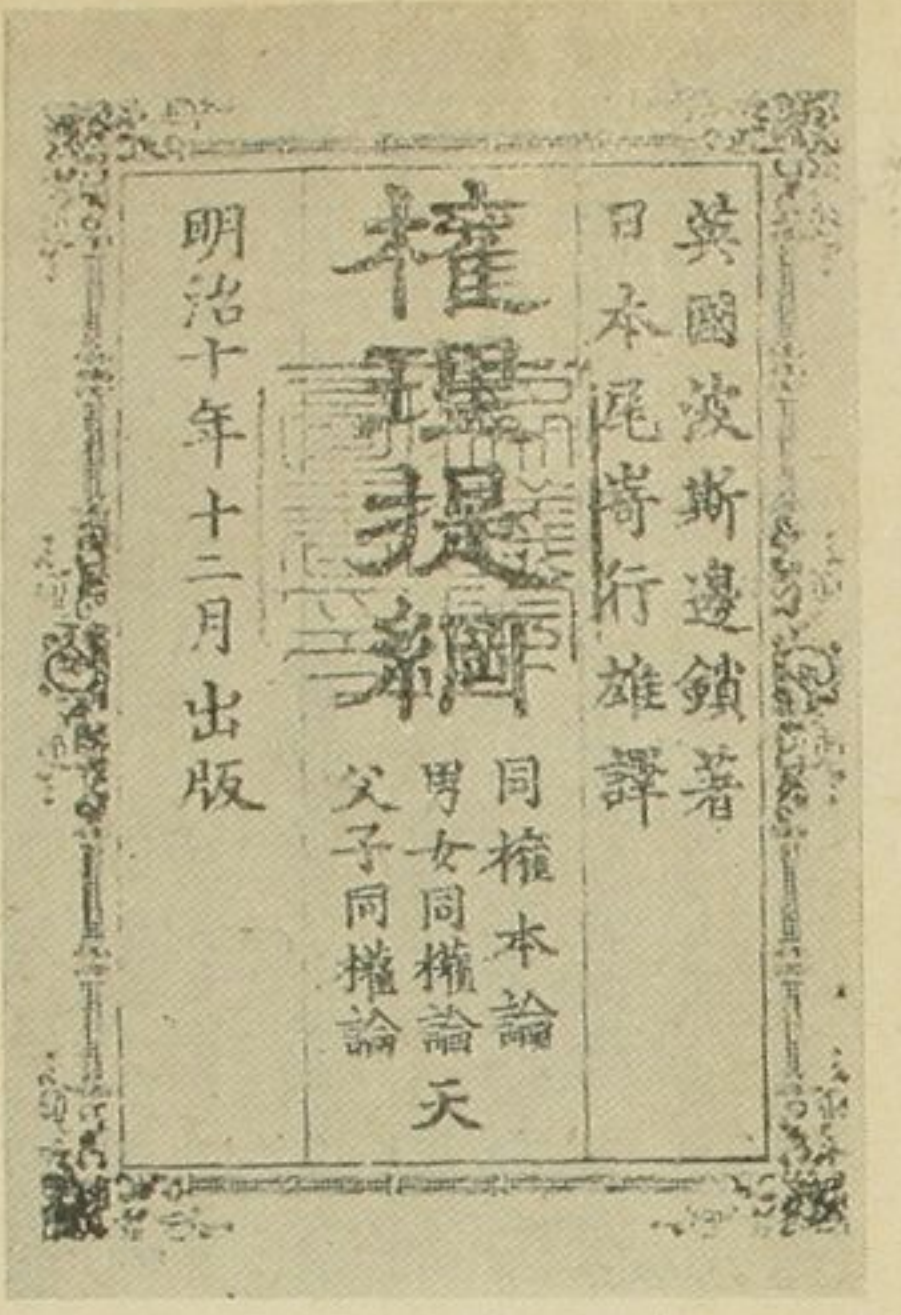 英國波斯邊鎖著
日本尾嵜行雄譯
權理提綱
同權本論
男女同權論
父子同權論
天
明治十年十二月出版